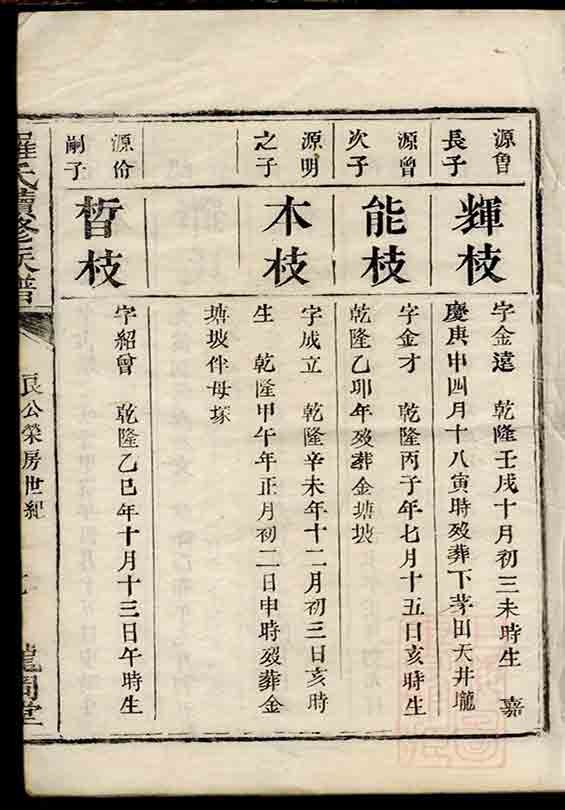 源魯
長子
輝枝
字金遠 乾隆壬戌十月初三未時生 嘉
慶庚申四月十八寅時歿葬下茅田天井壠
源曾
次子
能枝
字金才 乾隆丙子年七月十五日亥時生
乾隆乙卯年歿葬金塘坡
源明
之子
木枝
字成立 乾隆辛未年十二月初三日亥時
生 乾隆甲午年正月初二日申時歿葬金
塘坡伴母塚
源份
嗣子
晳枝
字紹曾 乾隆乙巳年十月十三日午時生
羅氏續修族譜
良公榮房世紀